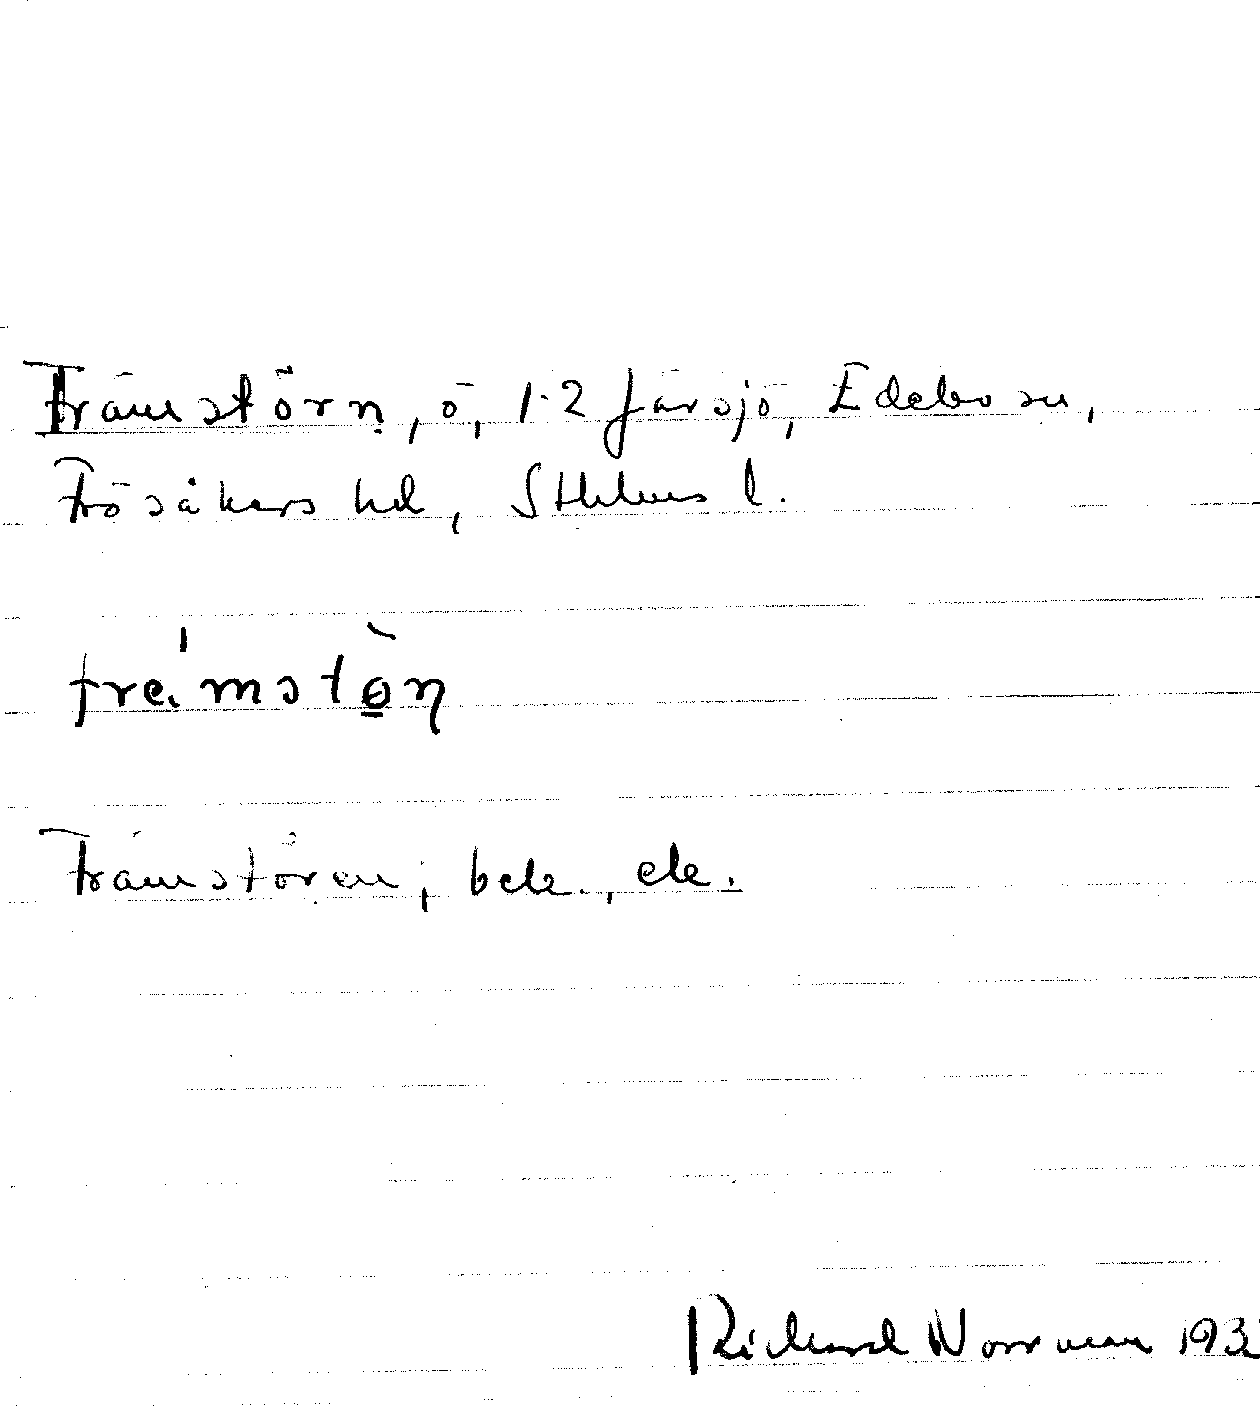 Främstörn, ö, 1·2 färsjö, Edebo sn,
Frösåkers hd, Sthlms l.
fre.'mstò̠n
Främstören, bek., ek.
Richard Norrman 193